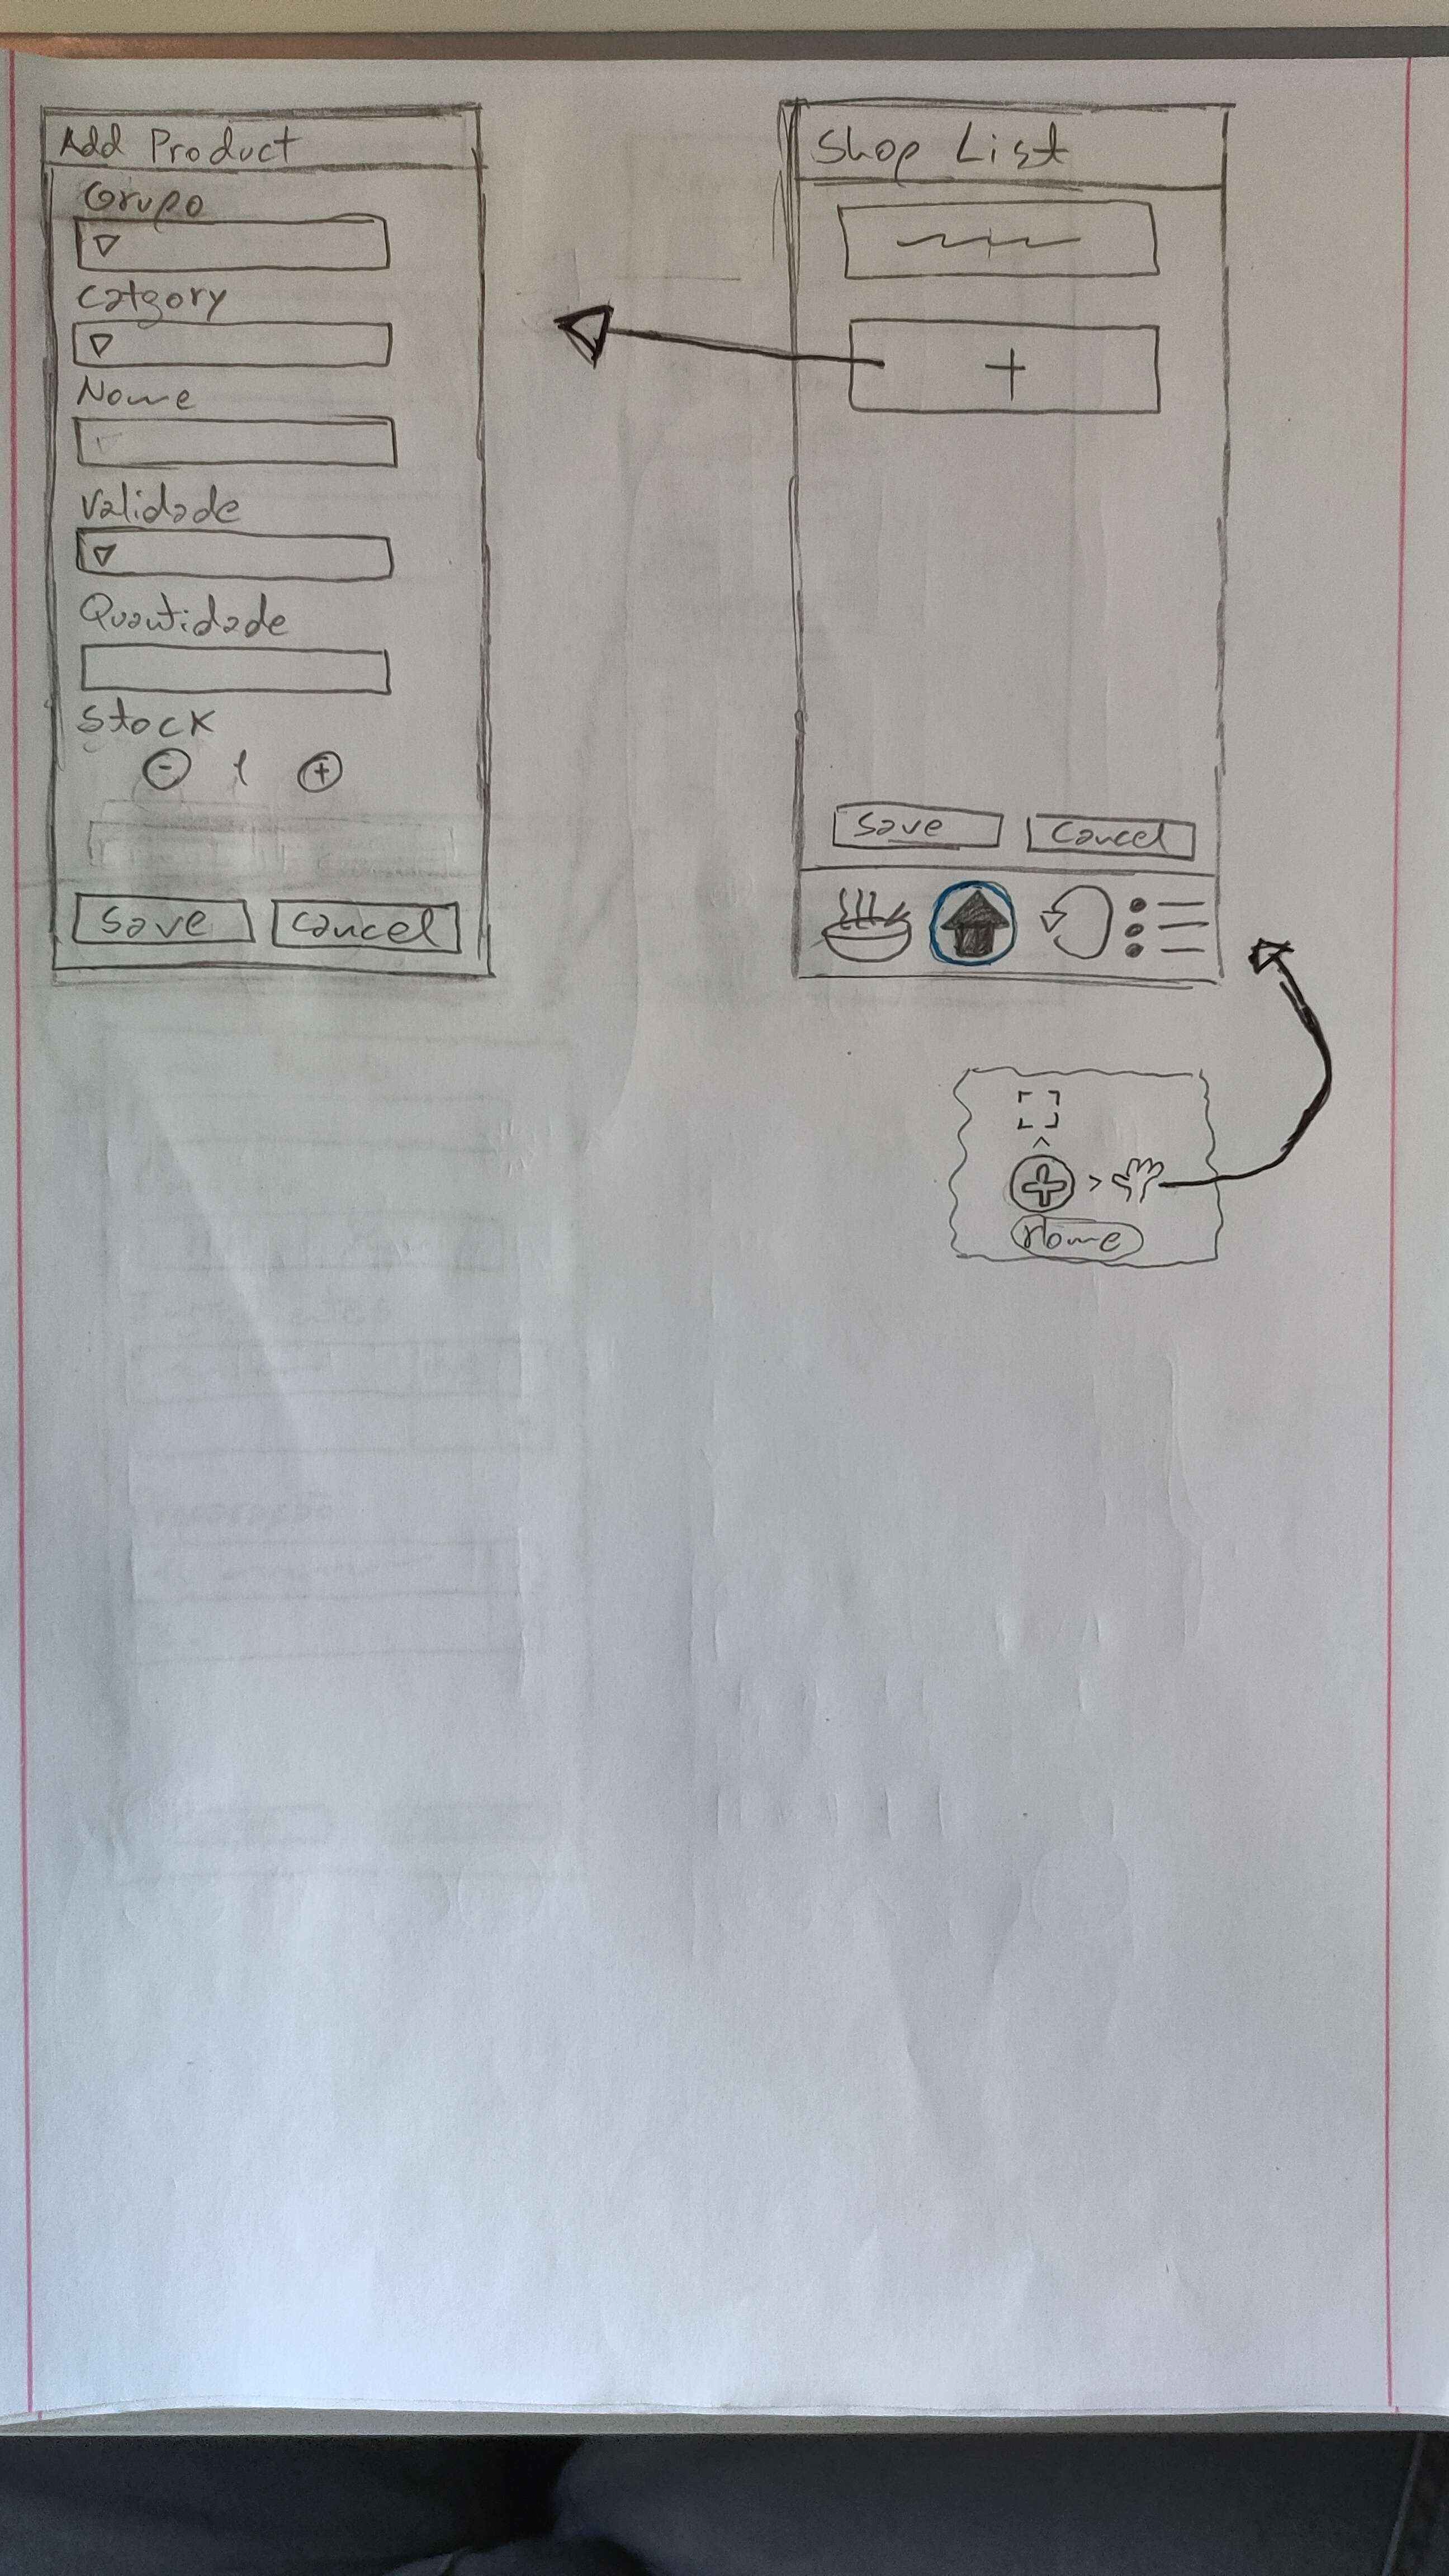 Add Product
Grupo
Catgory
Nome
Validade
Quantidade
Stock
- 1 +
Save Cancel
Shop List
+
Save Cancel
Home